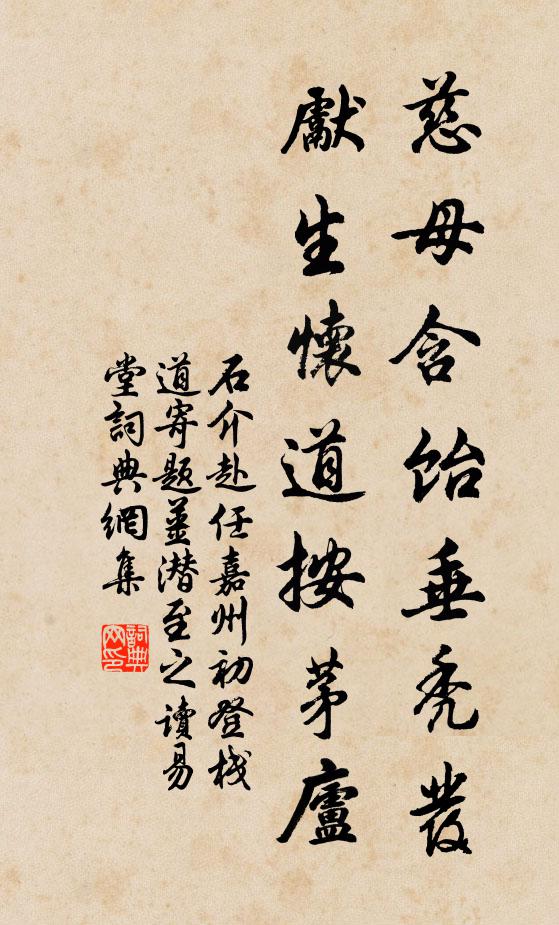 慈母含飴垂禿發
獻生懷道按茅廬
石介赴任嘉州初登棧
道寄題姜潜至之讀易
堂詞典網集
詞典網印